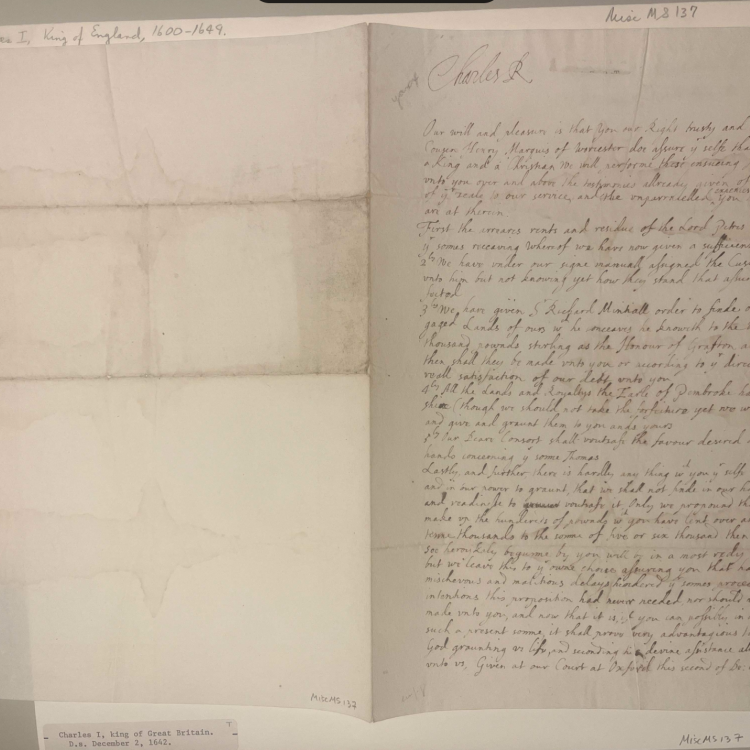 I, King of England, 1600-1649.
Misc MS 137
Charles R
Our will and pleasure is that you our Right trusty and
Cousen Henry Marquis of Worcester doe assure yr selfe tha
a King and a Christian We will performe these ensuing
unto you over and above the testymonies allready given of
of yr zeale to our service, and the you
are at therein
First the arreares rents and residue of the Lord Peters
ye somes receaving whereof we have now given a sufficien
2ly We have under our signe manuall assigned the Cus
unto him but not knowing yet how they stand that assu
3ly We have given Sr Richard order to finde o
gaged Lands of ours wch he conceaves he knoweth to the
thousand pounds sterling as the Honour of Grafton a
then shall they be made unto you or according to yr direc
reall satisfaction of our debt unto you
4ly All the Lands and Royaltys the Earle of Pembroke ha
(though we should not take the forfeiture yet we w
and give and graunt them to you and yours
5ly Our Deare Consort shall voutsafe the favour desired
concerning yr sonne Thomas
Lastly, and further there is hardly any thing wch you yr selfe
and in our power to graunt, that we shall not finde in our h
and readinesse to voutsafe it, Only we propound th
make up the hundereds of pounds wch you have lent over a
thousands to the somme of five or six thousand then
soe heroickely begunne by you will in a most
but we leave this to yr owne choice assuring you that ha
mischevous and malitious delayes hindered yr sonnes procee
intentions this proposition had never needed nor should
make unto you, and now that it is, if you can possibly in
such a present somme, it shall prove very advantagious t
God graunting us life, and seconding his devine assistance al
unto us, Given at our Court at Oxford this second of De
Misc MS 137
Charles I, king of Great Britain.
D.s. December 2, 1642.
Misc MS 137